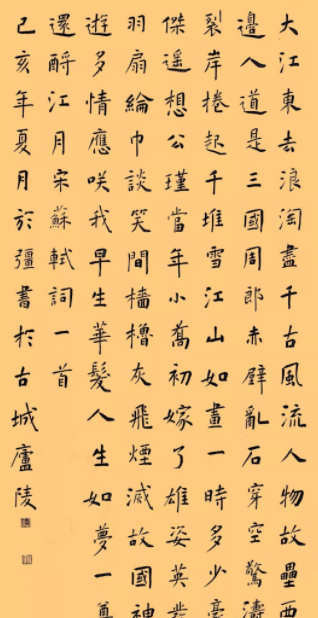 大江東去浪淘盡千古風流人物故壘西
邊人道是三國周郎赤壁亂石穿空驚濤
裂岸捲起千堆雪江山如畫一時多少豪
傑遙想公瑾當年小喬初嫁了雄姿英發
羽扇綸巾談笑間檣櫓灰飛煙滅故國神
遊多情應咲我早生華髮人生如夢一尊
還酹江月宋蘇軾詞一首
己亥年夏月於彊書於古城廬陵